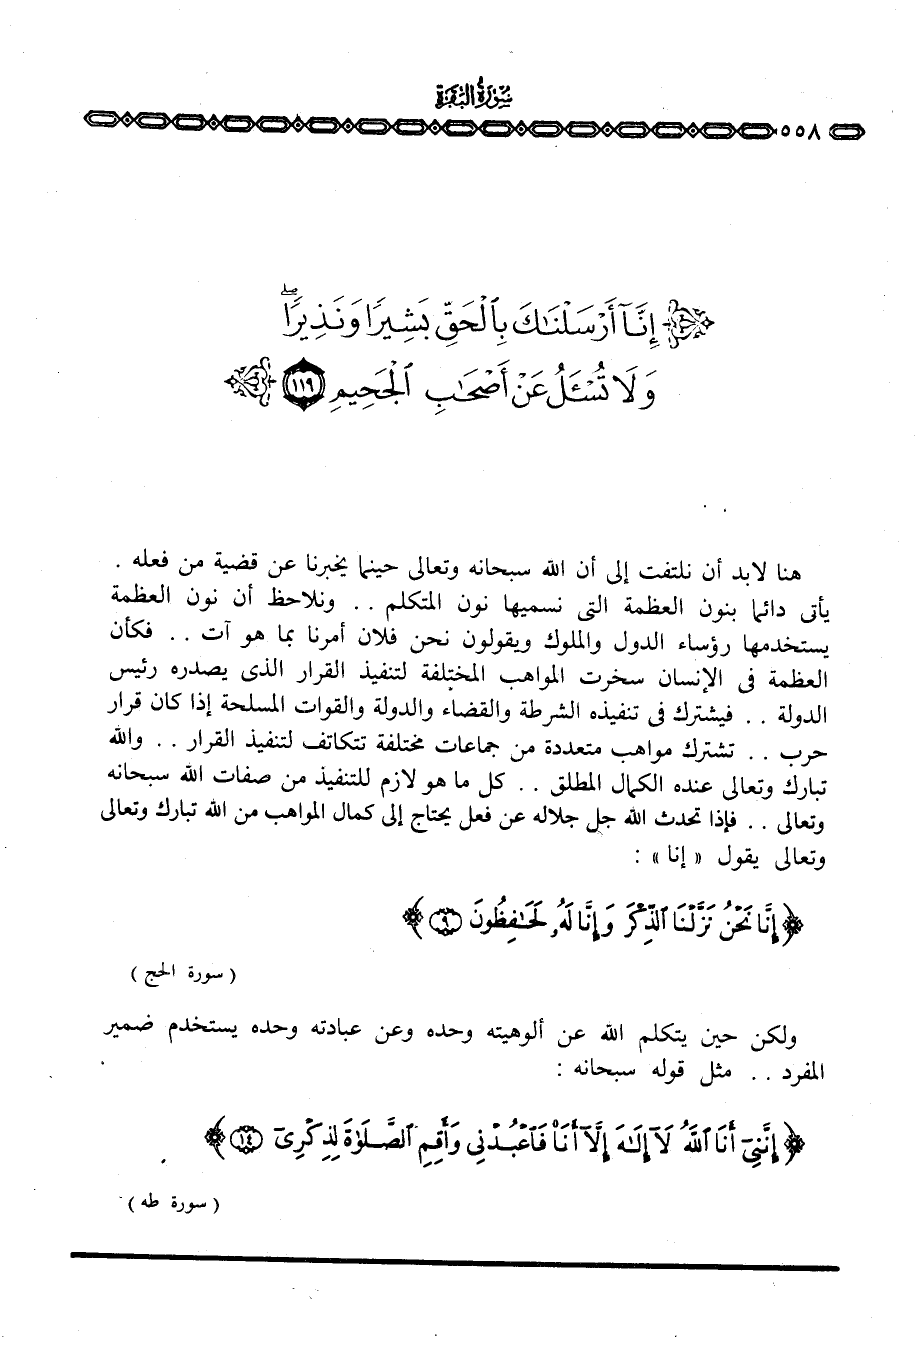 سورة البقرة
٥٥٨
إِنَّآ أَرْسَلْنَٰكَ بِٱلْحَقِّ بَشِيرًا وَنَذِيرًاۖ
وَلَا تُسْـَٔلُ عَنْ أَصْحَٰبِ ٱلْجَحِيمِ ١١٩
هنا لابد أن نلتفت إلى أن الله سبحانه وتعالى حينما يخبرنا عن قضية من فعله .
يأتى دائما بنون العظمة التى نسميها نون المتكلم . . ونلاحظ أن نون العظمة
يستخدمها رؤساء الدول والملوك ويقولون نحن فلان أمرنا بما هو آت . . فكأن
العظمة فى الإنسان سخرت المواهب المختلفة لتنفيذ القرار الذى يصدره رئيس
الدولة . . فيشترك فى تنفيذه الشرطة والقضاء والدولة والقوات المسلحة إذا كان قرار
حرب . . تشترك مواهب متعددة من جماعات مختلفة تتكاتف لتنفيذ القرار . . والله
تبارك وتعالى عنده الكمال المطلق . . كل ما هو لازم للتنفيذ من صفات الله سبحانه
وتعالى . . فإذا تحدث الله جل جلاله عن فعل يحتاج إلى كمال المواهب من الله تبارك وتعالى
وتعالى يقول « إنا » :
﴿ إِنَّا نَحْنُ نَزَّلْنَا ٱلذِّكْرَ وَإِنَّا لَهُۥ لَحَٰفِظُونَ ٩ ﴾
( سورة الحج )
ولكن حين يتكلم الله عن ألوهيته وحده وعن عبادته وحده يستخدم ضمير
المفرد . . مثل قوله سبحانه :
﴿ إِنَّنِىٓ أَنَا ٱللَّهُ لَآ إِلَٰهَ إِلَّآ أَنَا۠ فَٱعْبُدْنِى وَأَقِمِ ٱلصَّلَوٰةَ لِذِكْرِىٓ ١٤ ﴾
( سورة طه )